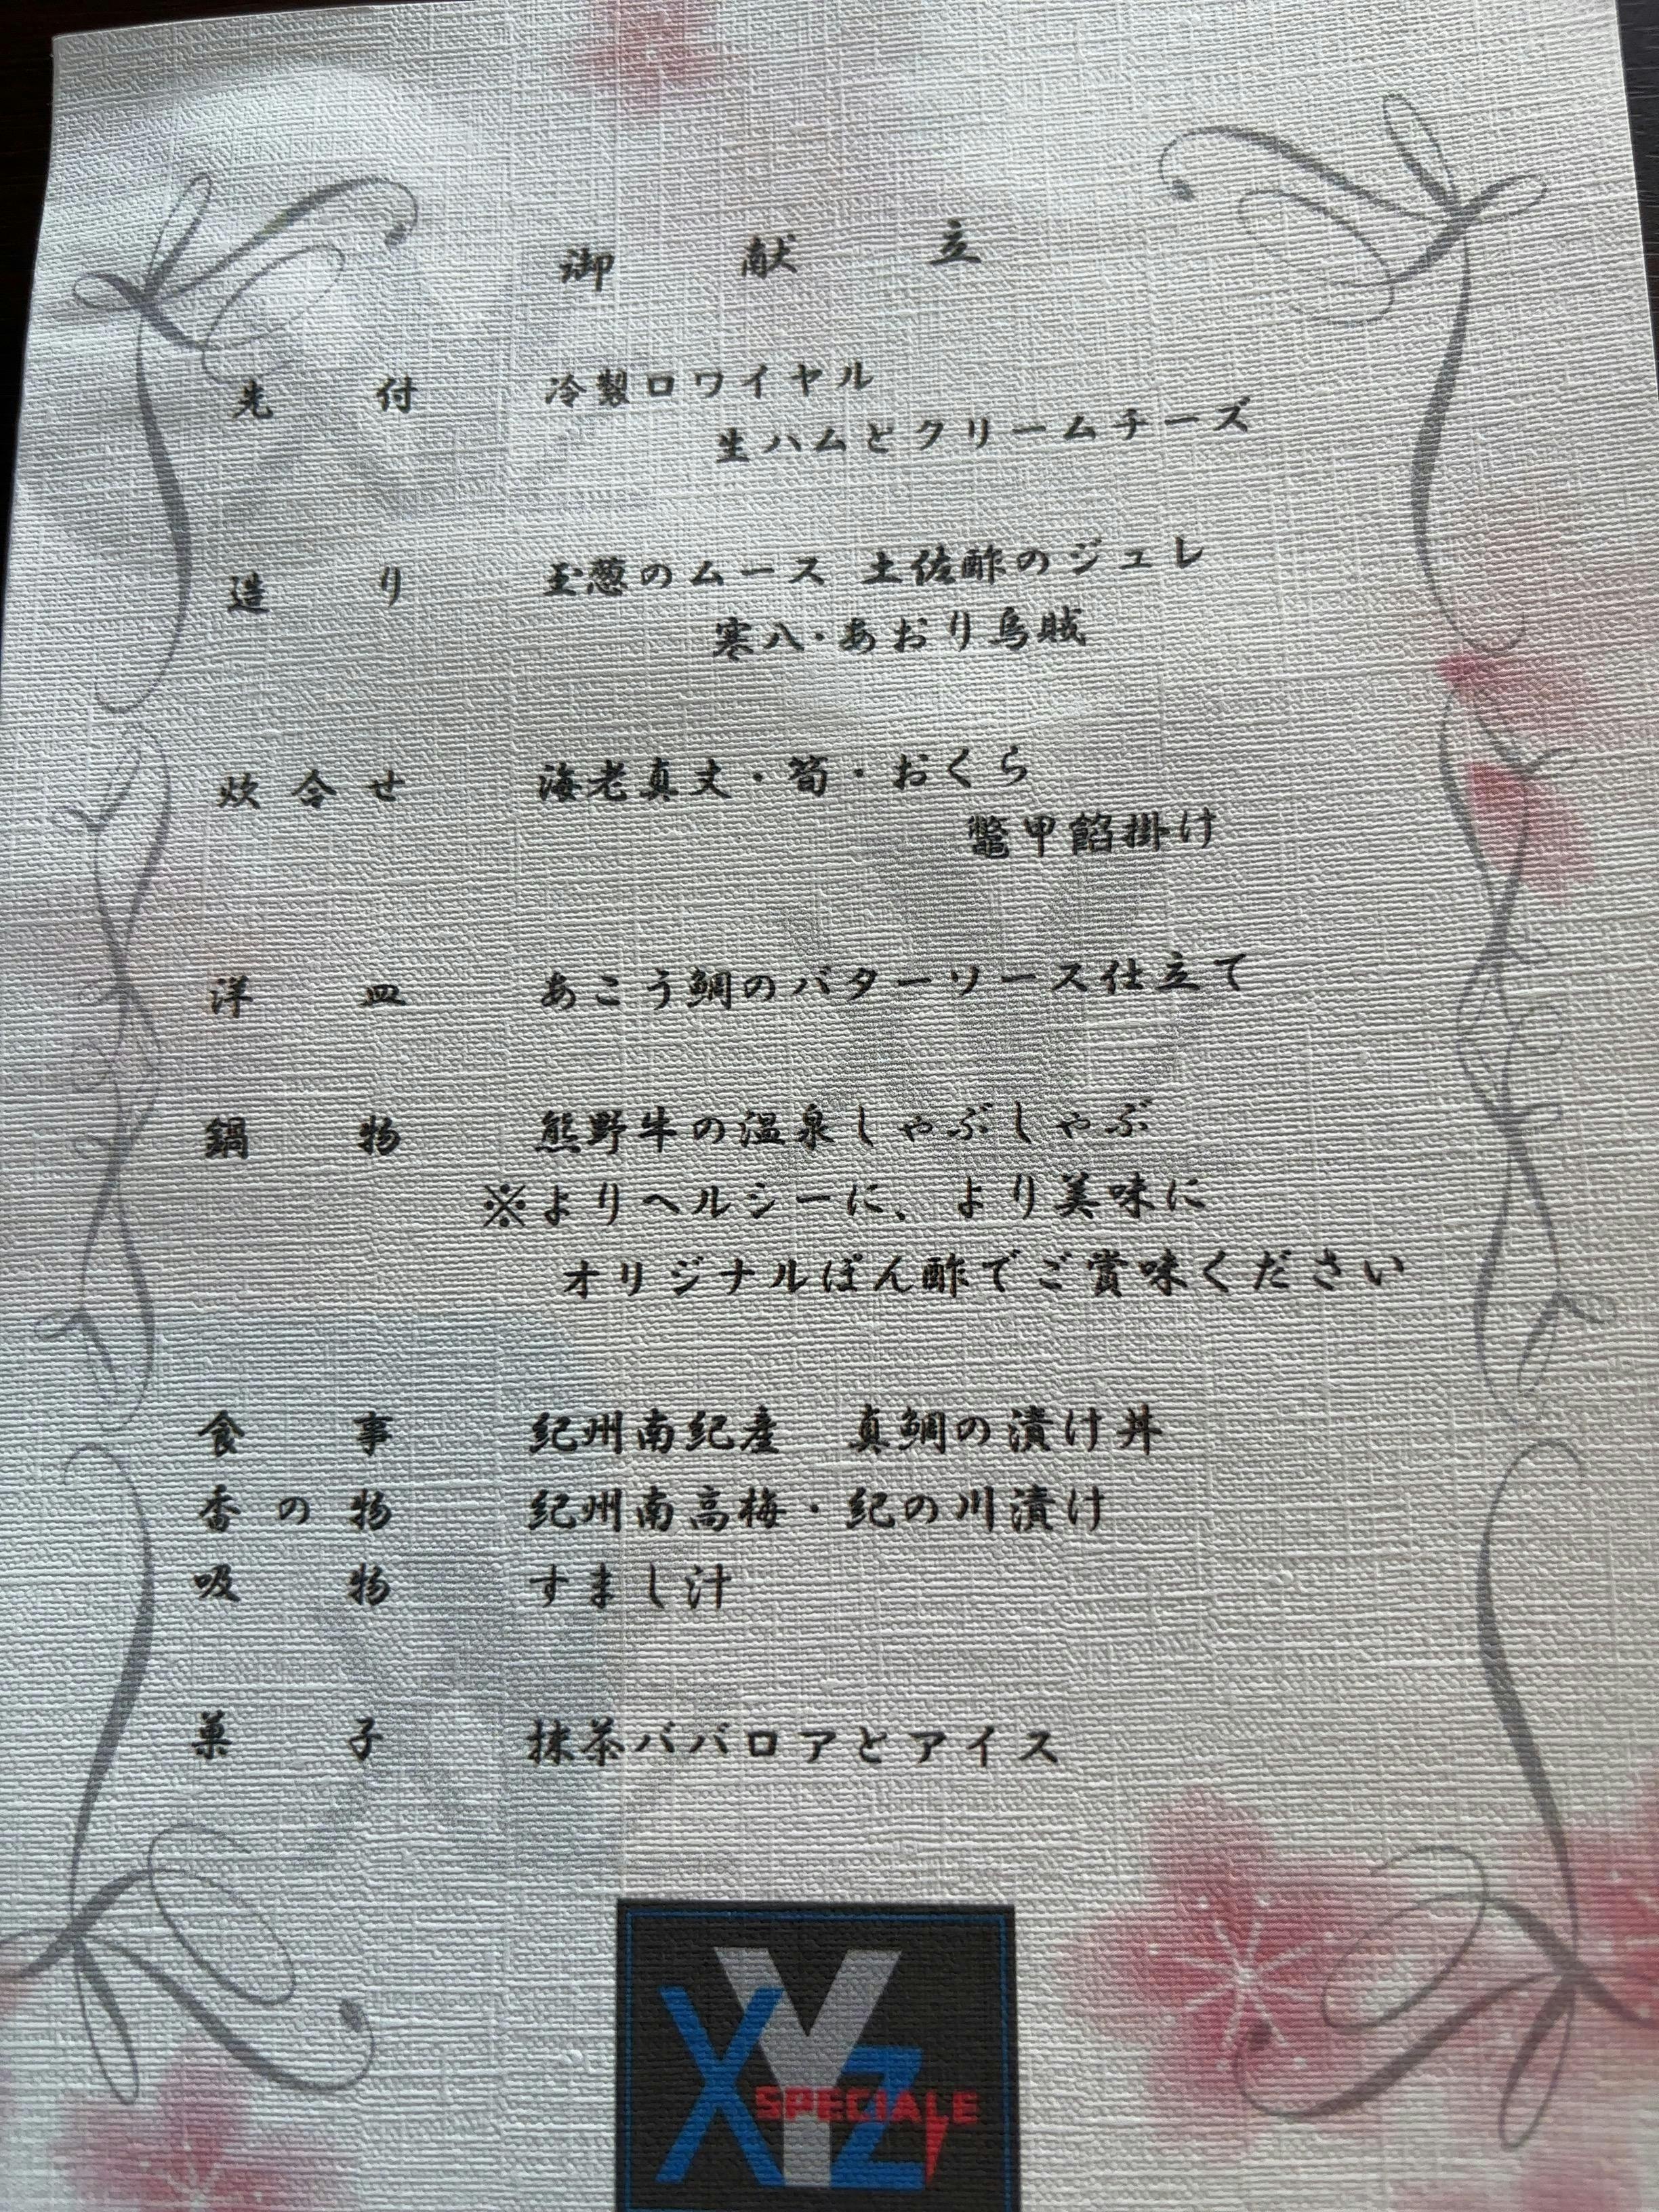 御献立
先付 冷製ロワイヤル
生ハムとクリームチーズ
造り 玉葱のムース 土佐酢のジュレ
寒八・あおり烏賊
炊合せ 海老真丈・筍・おくら
鼈甲餡掛け
洋皿 あこう鯛のバターソース仕立て
鍋物 熊野牛の温泉しゃぶしゃぶ
※よりヘルシーに、より美味に
オリジナルぽん酢でご賞味ください
食事 紀州南紀産 真鯛の漬け丼
香の物 紀州南高梅・紀の川漬け
吸物 すまし汁
菓子 抹茶ババロアとアイス
XYZ
SPECIALE